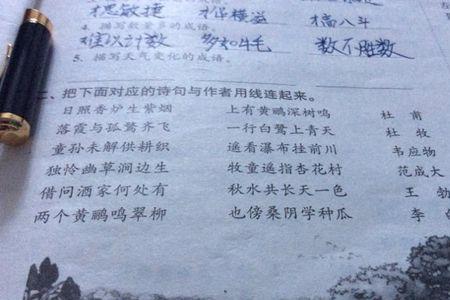 思敏捷 横溢 八斗
4. 描写数量多的成语。
难以计数 多如牛毛 数不胜数
5. 描写天气变化的成语。
二、把下面对应的诗句与作者用线连起来。
日照香炉生紫烟 上有黄鹂深树鸣 杜 甫
落霞与孤鹜齐飞 一行白鹭上青天 杜 牧
童孙未解供耕织 遥看瀑布挂前川 韦应物
独怜幽草涧边生 牧童遥指杏花村 范成大
借问酒家何处有 秋水共长天一色 王 勃
两个黄鹂鸣翠柳 也傍桑阴学种瓜 李